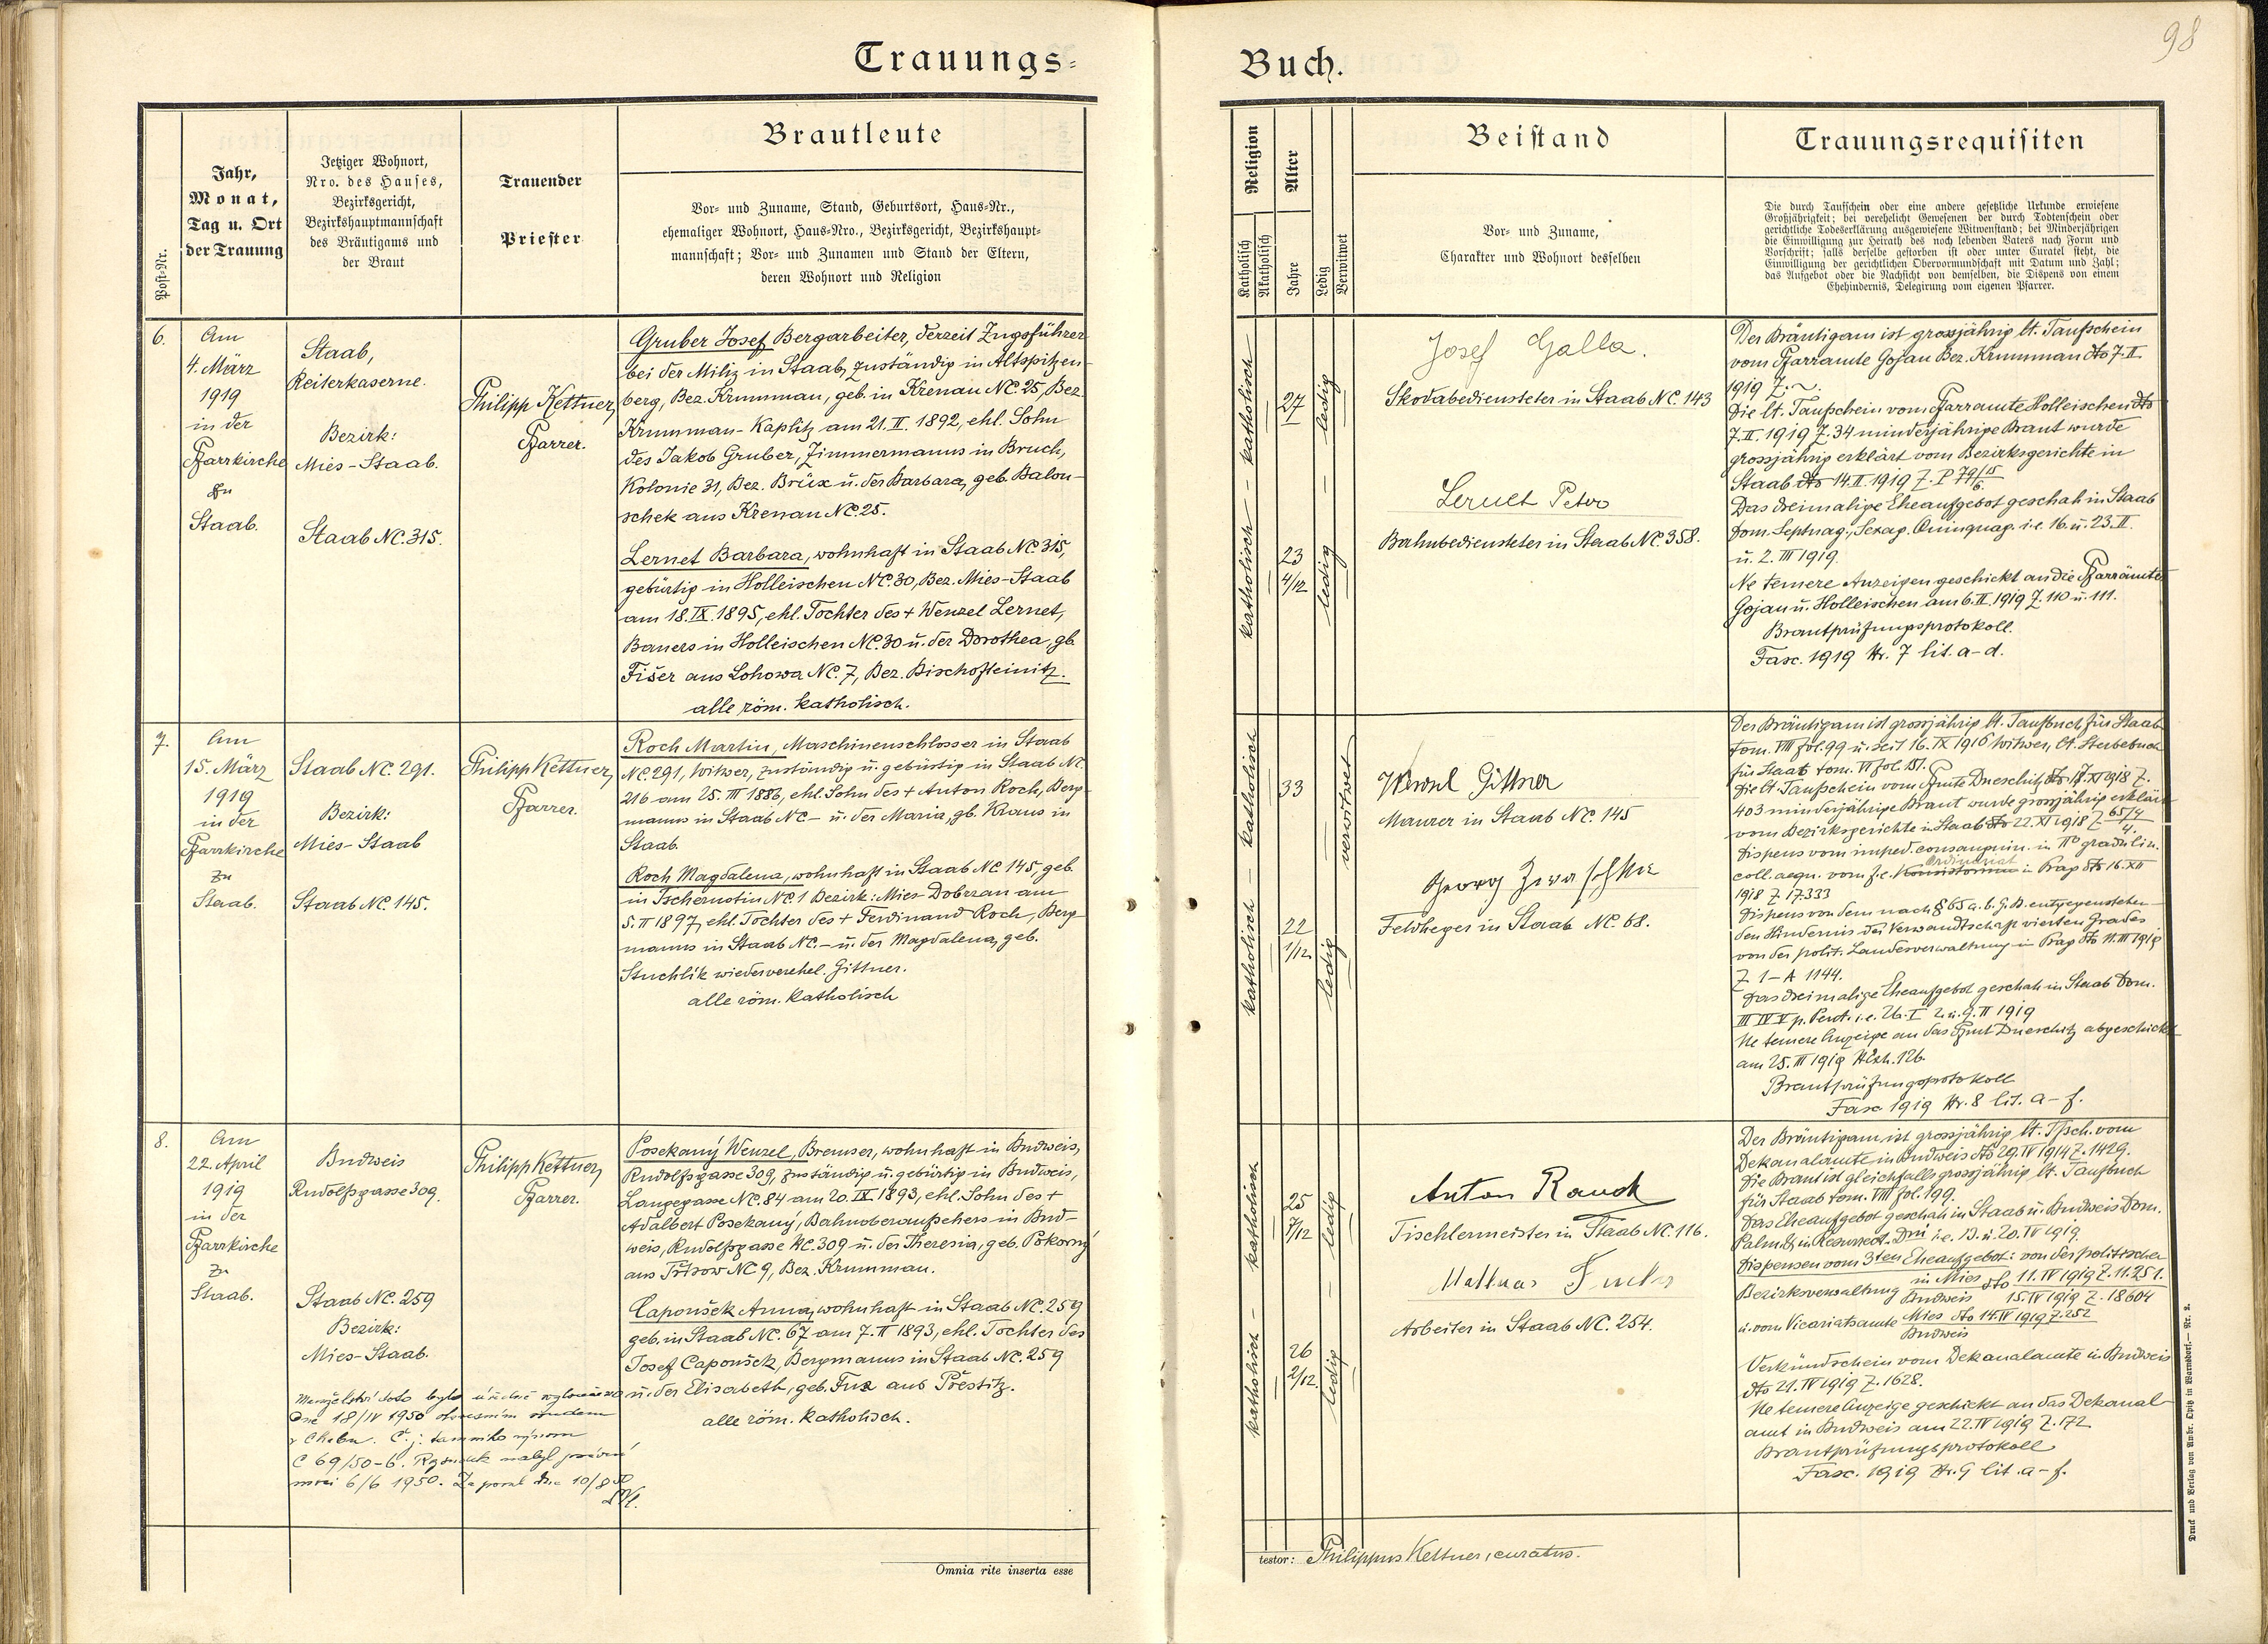 98
Trauungs=
Buch.
Post-Nr.
Jahr,
Monat,
Tag u. Ort
der Trauung
Jetziger Wohnort,
Nro. des Hauses,
Bezirksgericht,
Bezirkshauptmannschaft
des Bräutigams und
der Braut
Trauender
Priester
Brautleute
Vor- und Zuname, Stand, Geburtsort, Haus-Nr.,
ehemaliger Wohnort, Haus-Nro., Bezirksgericht, Bezirkshaupt-
mannschaft; Vor- und Zunamen und Stand der Eltern,
deren Wohnort und Religion
Religion
Katholisch
Akatholisch
Alter
Jahre
Ledig
Verwitwet
Beistand
Vor- und Zuname,
Charakter und Wohnort desselben
Trauungsrequisiten
Die durch Taufschein oder eine andere gesetzliche Urkunde erwiesene
Großjährigkeit; bei verehelicht Gewesenen der durch Todtenschein oder
gerichtliche Todeserklärung ausgewiesene Witwenstand; bei Minderjährigen
die Einwilligung zur Heirath des noch lebenden Vaters nach Form und
Vorschrift; falls derselbe gestorben ist oder unter Curatel steht, die
Einwilligung der gerichtlichen Obervormundschaft mit Datum und Zahl;
das Aufgebot oder die Nachsicht von demselben, die Dispens von einem
Ehehindernis, Delegirung vom eigenen Pfarrer.
6.
Am
4. März
1919
in der
Pfarrkirche
zu
Staab.
Staab,
Reiterkaserne.
Bezirk:
Mies-Staab.
Staab NC. 315.
Philipp Kettner,
Pfarrer.
Gruber Josef Bergarbeiter, derzeit Zugsführer
bei der Miliz in Staab, zuständig in Altspitzen-
berg, Bez. Krummau, geb. in Krenau NC. 25, Bez.
Krummau-Kaplitz am 21. II. 1892, ehl. Sohn
des Jakob Gruber, Zimmermanns in Bruch,
Kolonie 31, Bez. Brüx u. der Barbara, geb. Balon-
schek aus Krenau NC. 25.
Lernet Barbara, wohnhaft in Staab NC. 315,
gebürtig in Holleischen NC. 30, Bez. Mies-Staab
am 18. IX. 1895, ehl. Tochter des + Wenzel Lernet,
Bauers in Holleischen NC. 30 u. der Dorothea, gb.
Fišer aus Lohowa NC. 7, Bez. Bischofteinitz.
alle röm. katholisch.
katholisch - katholisch
27
23
4/12
ledig - ledig
Josef Galla.
Skodabediensteter in Staab NC. 143
Lernet Peter
Bahnbediensteter in Staab NC. 358.
Der Bräutigam ist grossjährig lt. Taufschein
vom Pfarramte Gojau Bez. Krummau dto 7. II.
1919 Z. ~.
Die lt. Taufschein vom Pfarramte Holleischen dto
7. II. 1919 Z. 34 minderjährige Braut wurde
grossjährig erklärt vom Bezirksgerichte in
Staab dto 14. II. 1919 Z. P 79/15
6.
Das dreimalige Eheaufgebot geschah in Staab
Dom. Septuag., Sexag. Quinquag. i.e. 16. u. 23. II.
u. 2. III 1919.
Ne temere Anzeigen geschickt an die Pfarrämter
Gojau u. Holleischen am 6. III. 1919 Z. 110 u. 111.
Brautprüfungsprotokoll.
Fasc. 1919 Nr. 7 lit. a-d.
7.
Am
15. März
1919
in der
Pfarrkirche
zu
Staab.
Staab NC. 291.
Bezirk:
Mies-Staab
Staab NC. 145.
Philipp Kettner,
Pfarrer.
Roch Martin, Maschinenschlosser in Staab
NC 291, Witwer, zuständig u. gebürtig in Staab NC.
216 am 25. III 1886, ehl. Sohn des + Anton Roch, Berg-
manns in Staab NC - u. der Maria, gb. Kraus in
Staab.
Roch Magdalena, wohnhaft in Staab NC 145, geb.
in Tschernotin NC. 1 Bezirk: Mies-Dobrzan am
5. II 1897, ehl. Tochter des + Ferdinand Roch, Berg-
manns in Staab NC. - u. der Magdalena, geb.
Stuchlik wiederverehel. Gittner.
alle röm. katholisch
katholisch - katholisch
33
22
1/12
verwitwet
ledig
Wenzel Gittner
Maurer in Staab NC. 145
Georg
Feldheger in Staab NC. 68.
Der Bräutigam ist grossjährig lt. Taufbuch für Staab
tom. VIII fol. 99 u. seit 16. IX 1916 Witwer, lt. Sterbebuch
für Staab tom. VI fol. 151.
Die lt. Taufschein vom Pfamte Dneschitz dto 17. XI 1918 Z.
403 minderjährige Braut wurde grossjährig erklärt
vom Bezirksgerichte in Staab dto 22. XI 1918 Z. 65/4
4.
Dispens vom imped. consanguin. in IIo gradu lin.
Ordinariat
coll. aequ. vom f.e. Konsistorium in Prag dto 16. XII
1918 Z. 17333
Dispens von dem nach § 65 a. b. G.B. entgegenstehen-
den Hindernis der Verwandtschaft vierten Grades
von der polit. Landesverwaltung in Prag dto 11. III 1919
Z 1-A 1144.
Das dreimalige Eheaufgebot geschah in Staab Dom.
III IV V p. Pent. i.e. 26. I 2. u. 9. II 1919
Ne temere Anzeige an das Pfamt Dneschitz abgeschickt
am 25. III 1919 NExh. 126.
Brautprüfungsprotokoll
Fasc 1919 Nr. 8 lit. a-f.
8.
Am
22. April
1919
in der
Pfarrkirche
zu
Staab.
Budweis
Rudolfsgasse 309.
Staab NC. 259
Bezirk:
Mies-Staab.
Philipp Kettner,
Pfarrer.
Posekaný Wenzel, Bremser, wohnhaft in Budweis,
Rudolfsgasse 309, zuständig u. gebürtig in Budweis,
Langegasse NC. 84 am 20. IX 1893, ehl. Sohn des +
Adalbert Posekaný, Bahnoberaufsehers in Bud-
weis, Rudolfsgasse NC. 309 u. der Theresia, geb. Pokorný
aus Tritsow NC 9, Bez. Krummau.
Capoušek Anna, wohnhaft in Staab NC. 259
geb. in Staab NC. 67 am 7. II 1893, ehl. Tochter des
Josef Capoušek, Bergmanns in Staab NC. 259
u. der Elisabeth, geb. Fux aus Přestitz.
alle röm. katholisch.
Manželství toto bylo
dne 18/IV 1950 okresním soudem
v Chebu. Č. j.
C 69/50-6. Rozsudek nabyl právní
moci 6/6 1950. Zapsal dne 10/8 50
katholisch - katholisch
25
7/12
26
2/12
ledig - ledig
Anton Rauch
Tischlermeister in Staab NC. 116.
Mathias
Arbeiter in Staab NC. 254.
Der Bräutigam ist grossjährig lt. Tfsch. vom
Dekanalamte in Budweis dto 29. IV 1914 Z. 1429.
Die Braut ist gleichfalls grossjährig lt. Taufbuch
für Staab tom. VIII fol. 199.
Das Eheaufgebot geschah in Staab u. Budweis Dom.
Palm. & in Resurrect. Dni i.e. 13. u. 20. IV 1919.
Dispensen vom 3ten Eheaufgebot: von der politischen
Bezirksverwaltung in Mies dto 11. IV 1919 Z. 11.251.
Budweis 15. IV 1919 Z. 18604
u. vom Vicariatsamte Mies dto 14. IV 1919 Z. 252
Budweis
Verkündschein vom Dekanalamte in Budweis
dto 21. IV 1919 Z. 1628.
Ne temere Anzeige geschickt an das Dekanal-
amt in Budweis am 22. IV 1919 Z. 172
Brautprüfungsprotokoll
Fasc. 1919 Nr. 9 lit. a-f.
Omnia rite inserta esse
testor: Philippus Kettner, curatus.
Druck und Verlag von Ambr. Opitz in Warnsdorf.— Nr. 2.